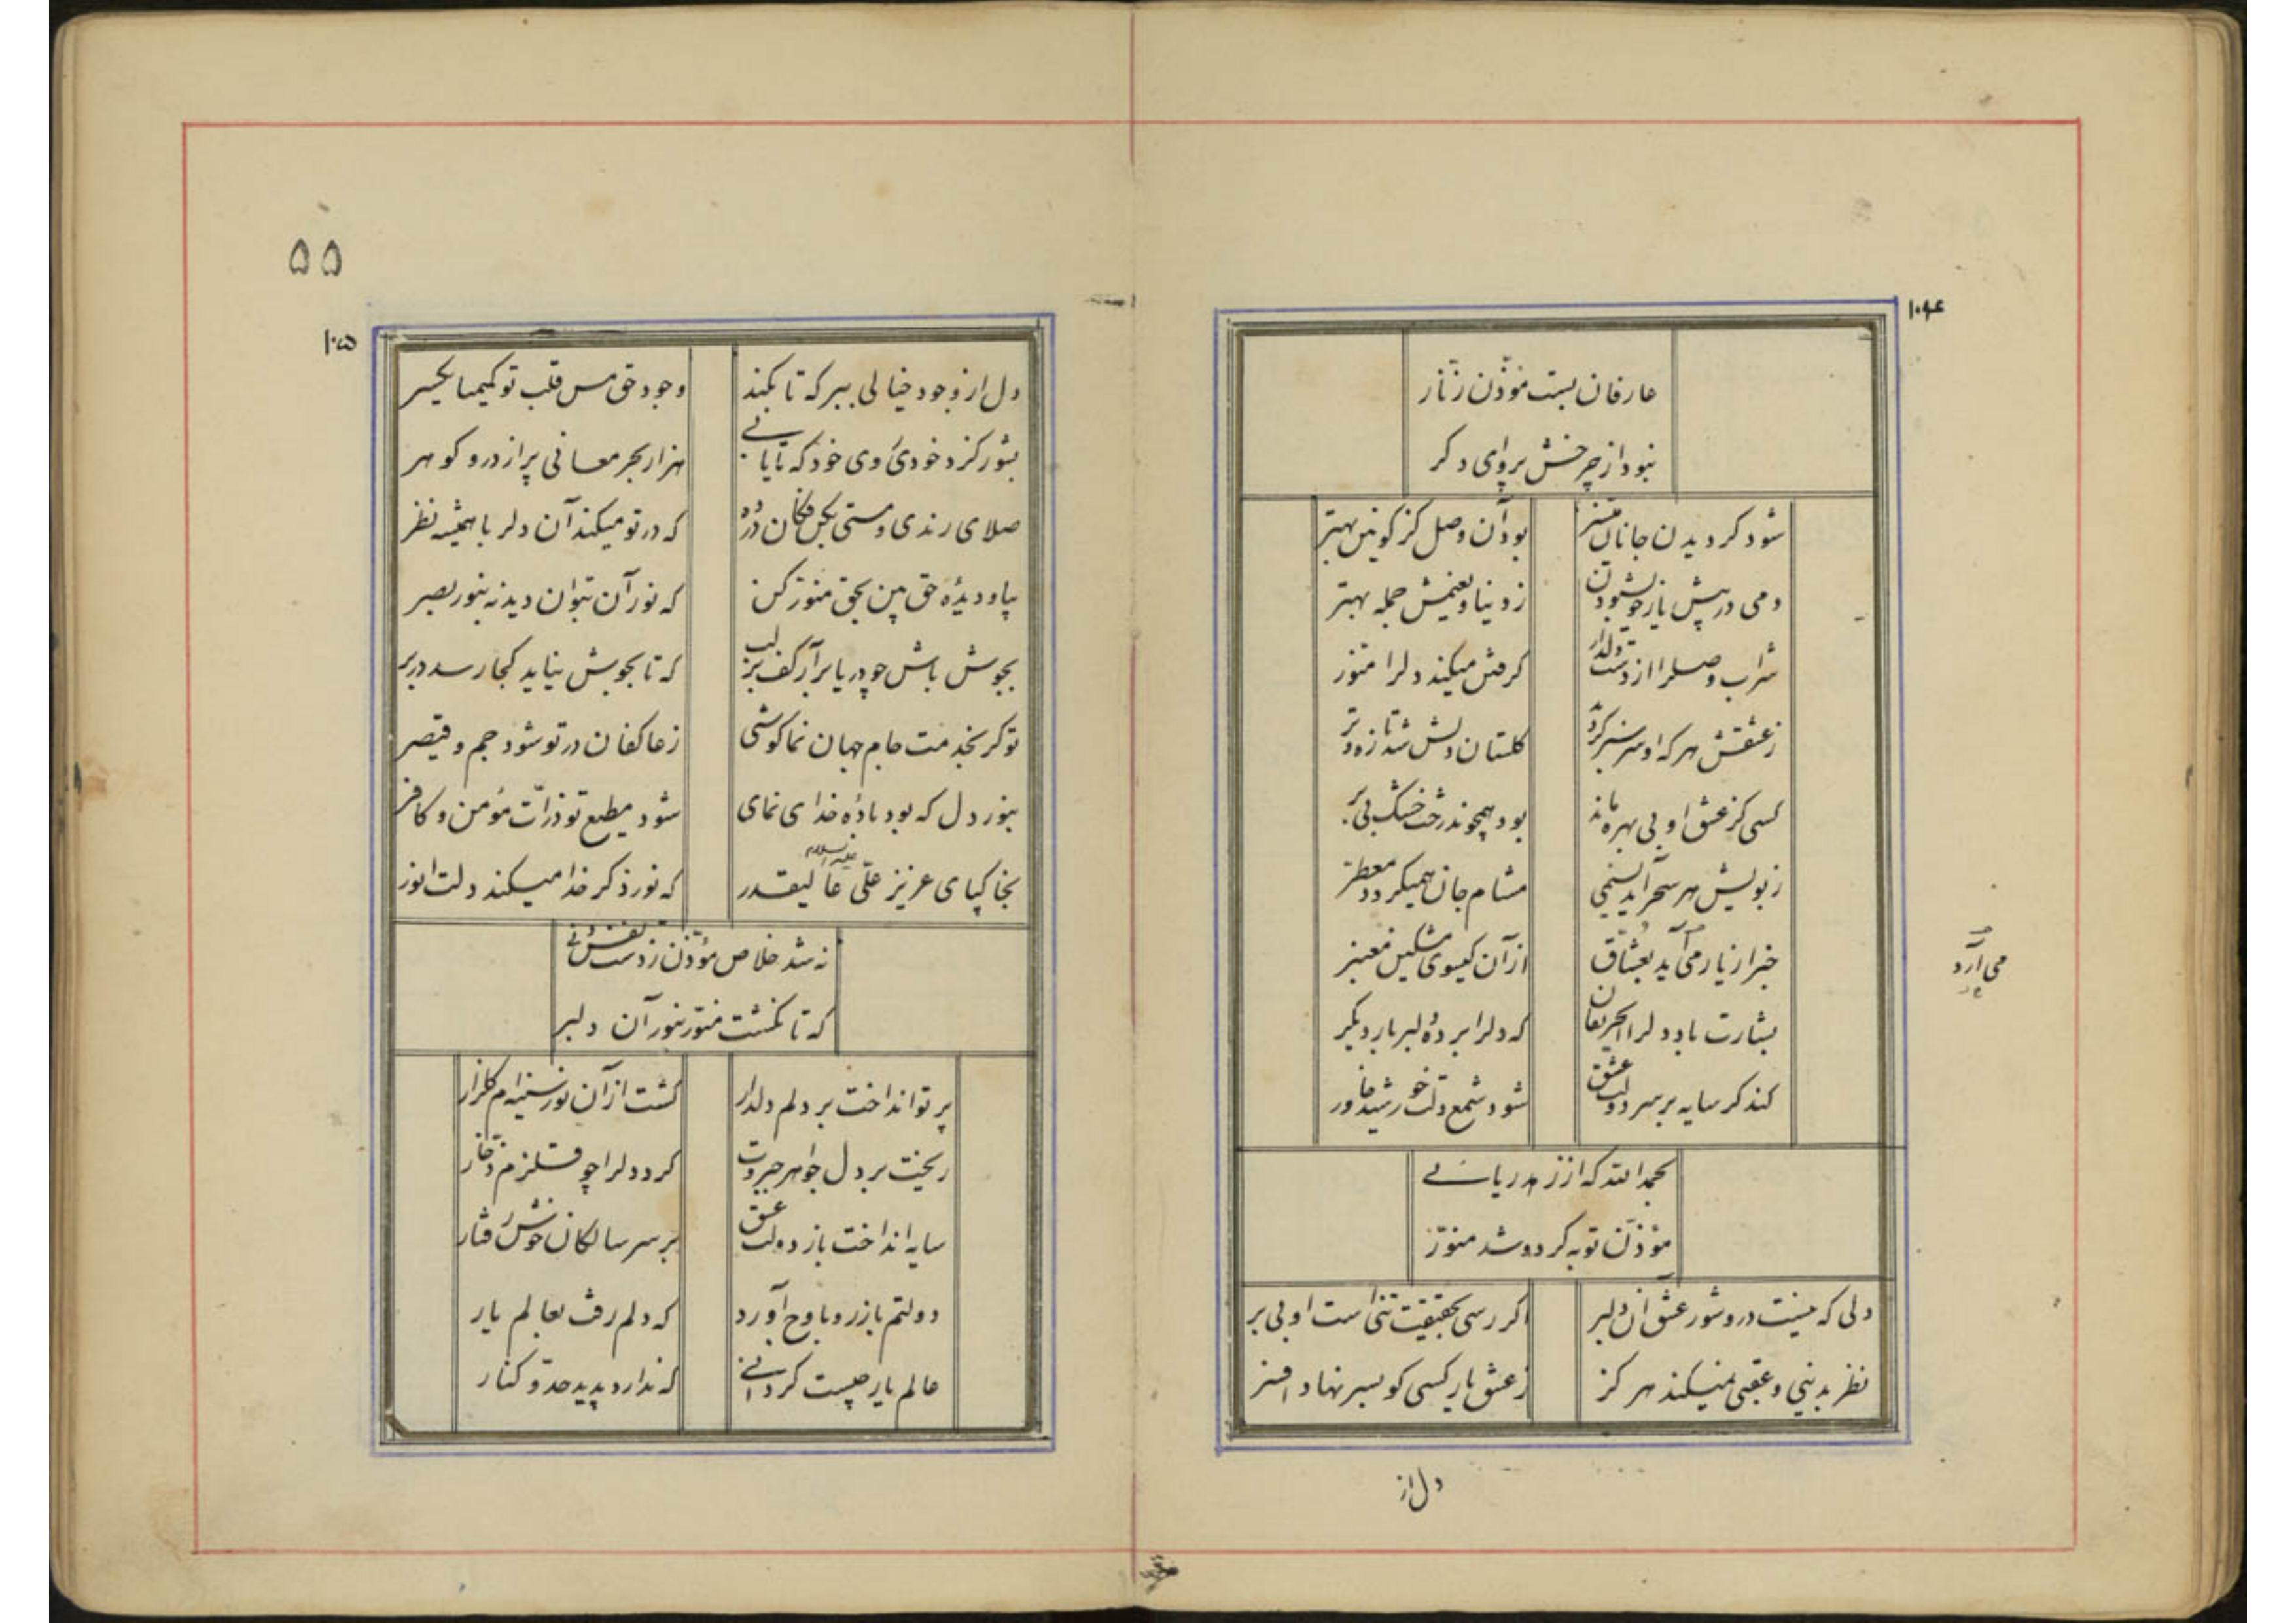 ۱۰۴
عارفان بست مؤذّن زنّار
نبود از چرخش پروای دکر
شود کر دیدن جانان میسّر
بود آن وصل کز کونین بهتر
دمی در پیش یار خویش بودن
ز دنیا و نعیمش جمله بهتر
شراب وصلرا از دست دلدار
کرفتن میکند دلرا منوّر
ز عشقش هر که او سر سبز کردد
کلستان دلش شد تازه و تر
کسی کز عشق او بی بهره ماند
بود همچون درخت خشک بی بر
ز بویش هر سحر آید نسیمی
مشام جان همیکردد معطّر
خبر از یار می آید بعشّاق
از آن کیسوی مشکین معنبر
می آرد
بشارت باد دلرا ای حریفان
که دلرا برده دلبر بار دیکر
کند کر سایه بر سر دولت عشق
شود شمع دلت خورشید خاور
بحمد الله که از زهد ریائی
مؤذّن توبه کرد و شد منوّر
دلی که نیست درو شور عشق آن دلبر
اکر رسی بحقیقت تنی است او بی بر
نظر بدنیی و عقبی نمیکند هر کز
ز عشق یار کسی کو بسر نهاد افسر
دل از
۵۵
۱۰۵
دل از وجود خیالی ببر که تا بکند
وجود حق مس قلب تو کیمیا یکسر
بشور کرد خودی وی خود که تا یابی
هزار بحر معانی پر از در و کوهر
صلای رندی و مستی بکن فکان در ده
که در تو میکند آن دلربا همیشه نظر
بیا و دیدهٔ حق بین بحق منوّر کن
که نور آن بتوان دید نه بنور بصر
بجوش باش چو دریا برآر کف بر لب
که تا بجوش نیاید کجا رسد در بر
تو کر بخدمت جام جهان نما کوشی
ز عاکفان در تو شود جم و قیصر
بنور دل که بود باده خدای نمای
شود مطیع تو ذرّات مؤمن و کافر
بخاکپای عزیز علّی عالیقدر
علیه السلام
که نور ذکر خدا میکند دلت انور
نه شد خلاص مؤذّن ز دست نفس دنی
که تا نکشت منوّر بنور آن دلبر
پرتو انداخت بر دلم دلدار
کشت از آن نور سینه‌ام کلزار
ریخت بر دل جواهر جبروت
کرد دلرا چو قلزم زخّار
سایه انداخت باز دولت عشق
بر سر سالکان خوش رفتار
دولتم باز رو باوج آورد
که دلم رفت بعالم یار
عالم یار چیست کر دانی
که ندارد پدید حدّ و کنار